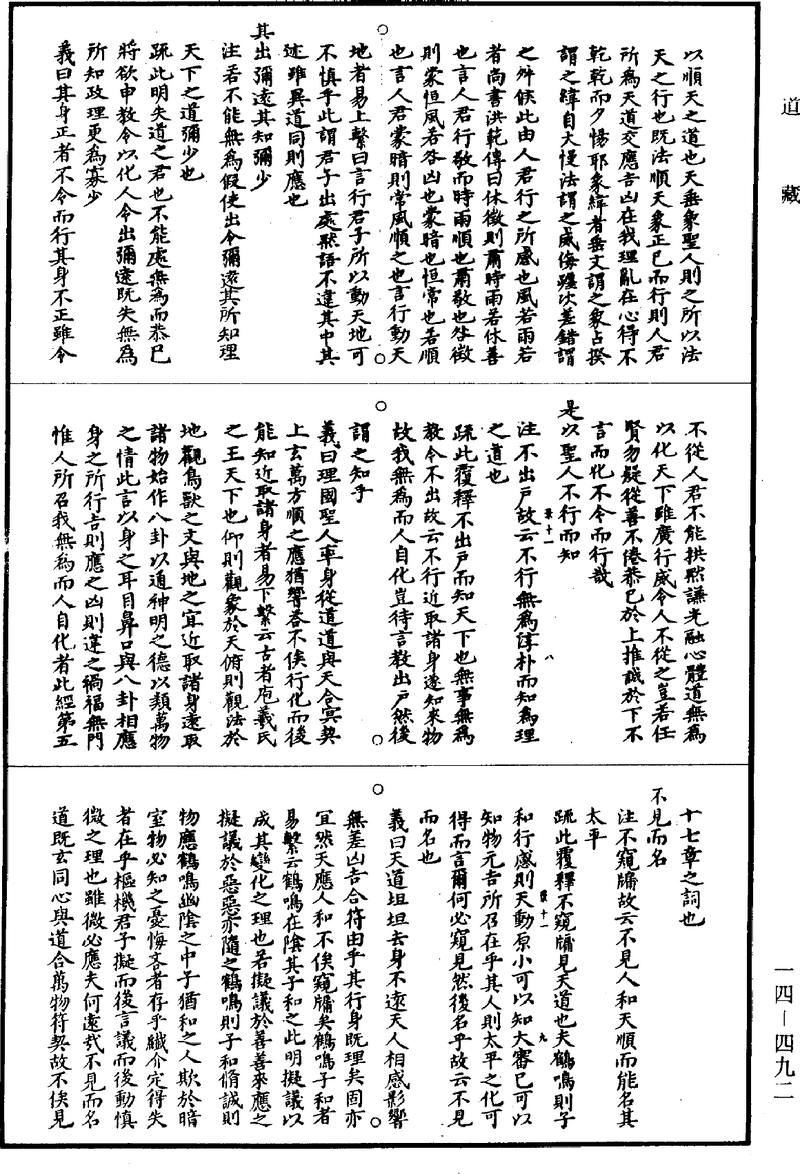 道藏
以順天之道也天垂象聖人則之所以法
天之行也既法順天象正己而行則人君
所為天道交應吉凶在我理亂在心得不
乾乾而夕惕耶象緯者垂文謂之象占揆
謂之緯自大慢法謂之威侮躔次差錯謂
之舛候此由人君行之所感也風若雨若
者尚書洪範傳曰休徵則肅時雨若休善
也言人君行敬而時雨順也肅敬也咎徵
則蒙恒風若咎凶也蒙暗也恒常也若順
也言人君蒙暗則常風順之也言行動天
地者易上繫曰言行君子所以動天地可
不慎乎此謂君子出處默語不違其中其
迹雖異道同則應也
其出彌遠其知彌少
注若不能無為假使出令彌遠其所知理
天下之道彌少也
疏此明失道之君也不能處無為而恭己
將欲申教令以化人令出彌遠既失無為
所知政理更為寡少
義曰其身正者不令而行其身不正雖令
不從人君不能拱默謙光融心體道無為
以化天下雖廣行威令人不從之豈若任
賢勿疑從善不倦恭己於上推誠於下不
言而化不令而行哉
是以聖人不行而知
注不出戶故云不行無為淳朴而知為理
之道也
疏此覆釋不出戶而知天下也無事無為
教令不出故云不行近取諸身遂知來物
故我無為而人自化豈待言教出戶然後
謂之知乎
義曰理國聖人率身從道道與天合冥契
上玄萬方順之應猶響荅不俟行化而後
能知近取諸身者易下繫云古者庖羲氏
之王天下也仰則觀象於天俯則觀法於
地觀鳥獸之文與地之宜近取諸身遠取
諸物始作八卦以通神明之德以類萬物
之情此言以身之耳目鼻口與八卦相應
身之所行吉則應之凶則違之禍福無門
惟人所召我無為而人自化者此經第五
十七章之詞也
不見而名
注不窺牖故云不見人和天順而能名其
太平
疏此覆釋不窺牖見天道也夫鶴鳴則子
和行感則天動原小可以知大審己可以
知物元吉所召在乎其人則太平之化可
得而言爾何必窺見然後名乎故云不見
而名也
義曰天道坦坦去身不遠天人相感影響
無差凶吉合符由乎其行身既理矣固亦
冝然天應人和不俟窺牖矣鶴鳴子和者
易繫云鶴鳴在陰其子和之此明擬議以
成其變化之理也若擬議於善善來應之
擬議於惡惡亦隨之鶴鳴則子和脩誠則
物應鶴鳴幽陰之中子猶和之人欺於暗
室物必知之憂悔吝者存乎纖介定得失
者在乎樞機君子擬而後言議而後動慎
微之理也雖微必應夫何遠哉不見而名
道既玄同心與道合萬物符契故不俟見
一四—四九二